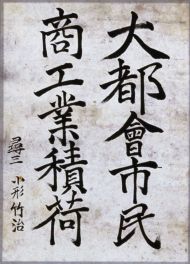 大都會市民
商工業積荷
尋三 小形竹治